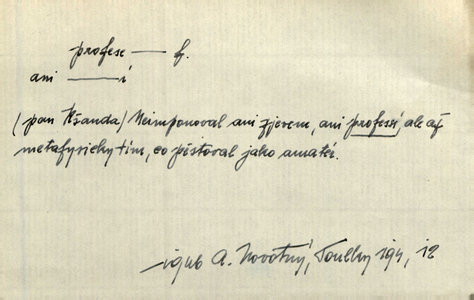 profese — f.
ani —— í
(pan Kšanda) Neimponoval ani zjevem, ani profesí, ale až
metafysicky tím, co pěstoval jako amatér.
A. Novotný, Toulky